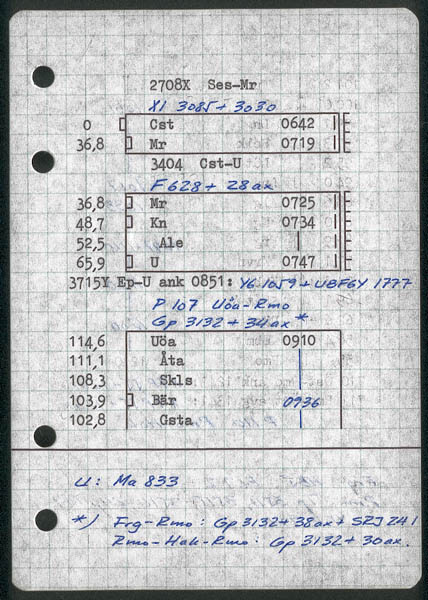 2708X Ses-Mr
X1 3085 + 3030
0 Cst 0642
36,8 Mr 0719
3404 Cst-U
F 628 + 28 ax
36,8 Mr 0725
48,7 Kn 0734
52,5 Ale |
65,9 U 0747
3715Y Ep-U ank 0851: Y6 1059 + UBF6Y 1777
P 107 Uöa-Rmo
Gp 3132 + 34 ax *
114,6 Uöa 0910
111,1 Åta
108,3 Skls
103,9 Bär 0936
102,8 Gsta
U: Ma 833
*) Frg-Rmo: Gp 3132 + 38 ax + SRJ 241
Rmo-Hak-Rmo: Gp 3132 + 30 ax.